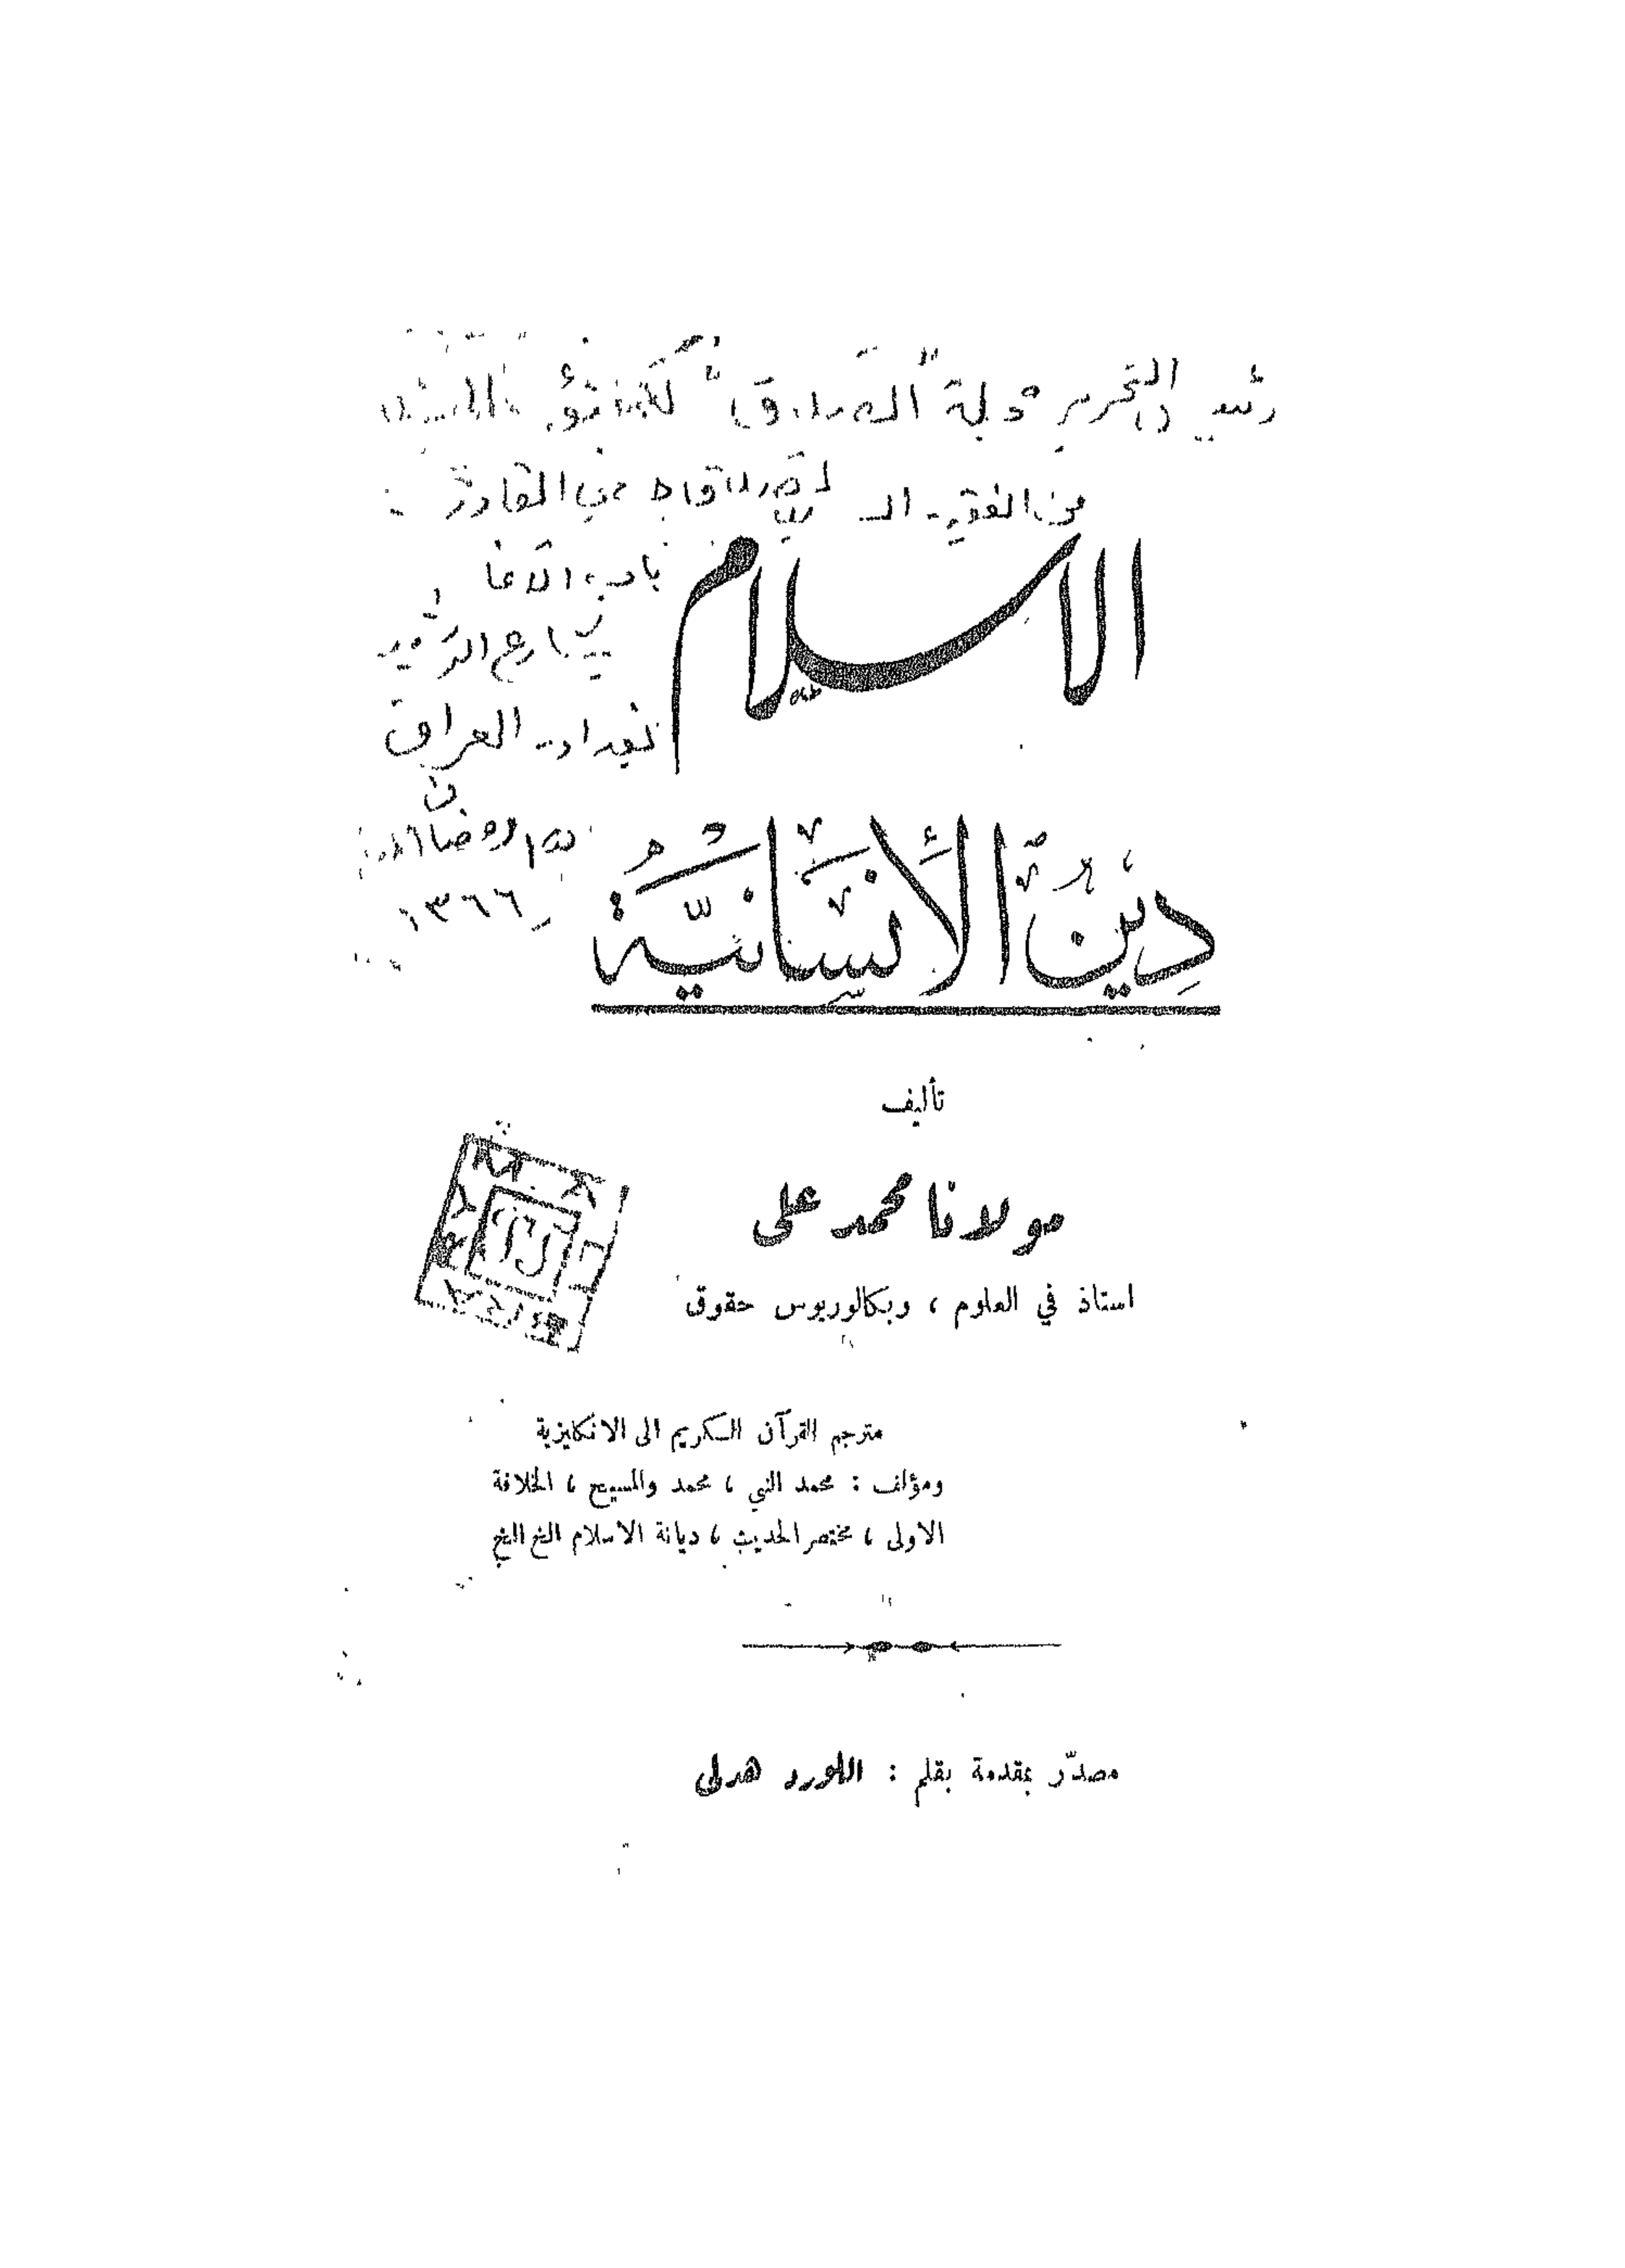 رئيس التحرير مجلة "الصدق" لكهنؤ
من الفقير القادري
باب الاغا
بشارع الرشيد
بغداد - العراق
رمضان
١٣٦٦
الاسلام
دِينُ الأَنْسَانِيَّة
تأليف
مولانا محمد علي
استاذ في العلوم ، وبكالوريوس حقوق
مترجم القرآن الكريم الى الانكليزية
ومؤلف : محمد النبي ، محمد والمسيح ، الخلافة
الاولى ، مختصر الحديث ، ديانة الاسلام الخ الخ
مصدّر بمقدمة بقلم : اللورد هدلي